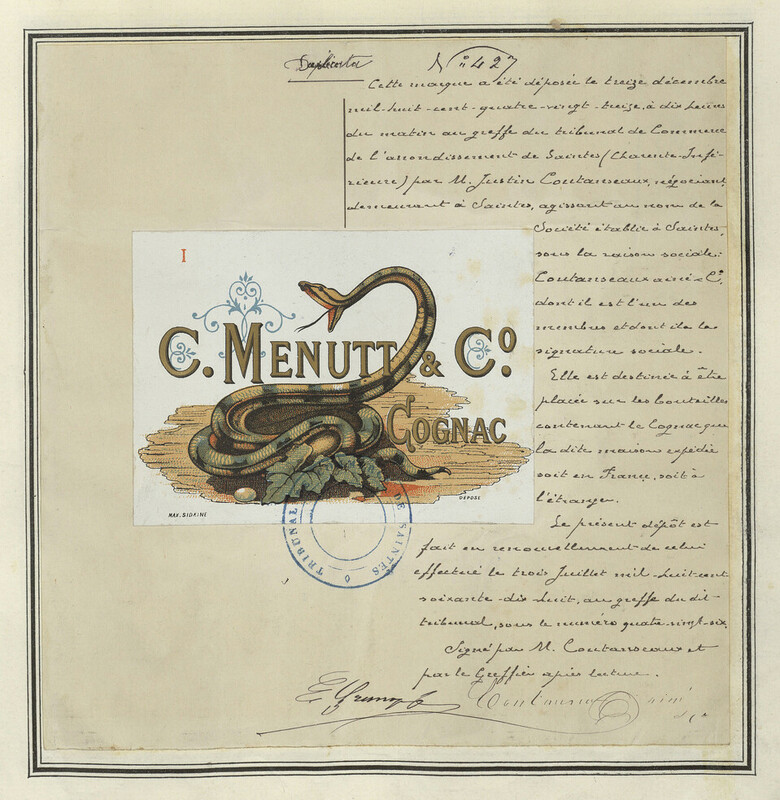 Duplicata
N° 427
Cette marque a été déposée le treize décembre
mil-huit-cent-quatre-vingt-treize, à dix heures
du matin au greffe du tribunal de Commerce
de l'arrondissement de Saintes (Charente-Infé-
rieure) par M. Justin Coutanseaux, négociant,
demeurant à Saintes, agissant au nom de la
Société établie à Saintes,
sous la raison sociale:
Coutanseaux ainé & Cº,
dont il est l'un des
membres et dont il a la
signature sociale.
Elle est destinée à être
placée sur les bouteilles
contenant le Cognac que
la dite maison expédie
soit en France, soit à
l'étranger.
Le présent dépôt est
fait en renouvellement de celui
effectué le trois Juillet mil-huit-cent
soixante-dix-huit, au greffe du dit
tribunal, sous le numéro quatre-vingt-six.
Signé par M. Coutanseaux et
par le Greffier après lecture.
I
C. MENUTT & Cº.
COGNAC
MAX. SIDAINE
DÉPOSÉ
TRIBUNAL DE SAINTES